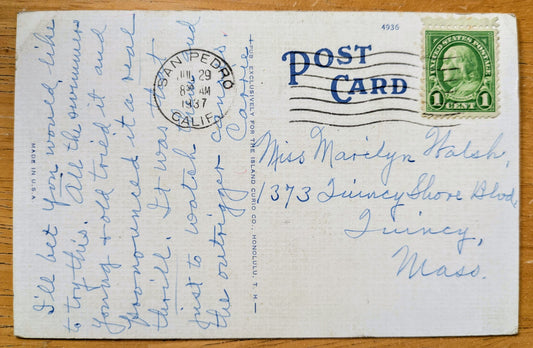 I'll bet you would like
to try this. All the swimmers
young & old tried it and
pronounced it a real
thrill. It was thrill
just to watch them and
the outrigger canoes.
MADE IN U.S.A.
PUB. EXCLUSIVELY FOR THE ISLAND CURIO CO., HONOLULU, T. H.
4936
POST
CARD
SAN PEDRO
JUL 29
8 AM
1937
CALIF.
UNITED STATES POSTAGE
1 1
CENT
Miss Marilyn Walsh,
1373 Quincy Shore Blvd,
Quincy,
Mass.